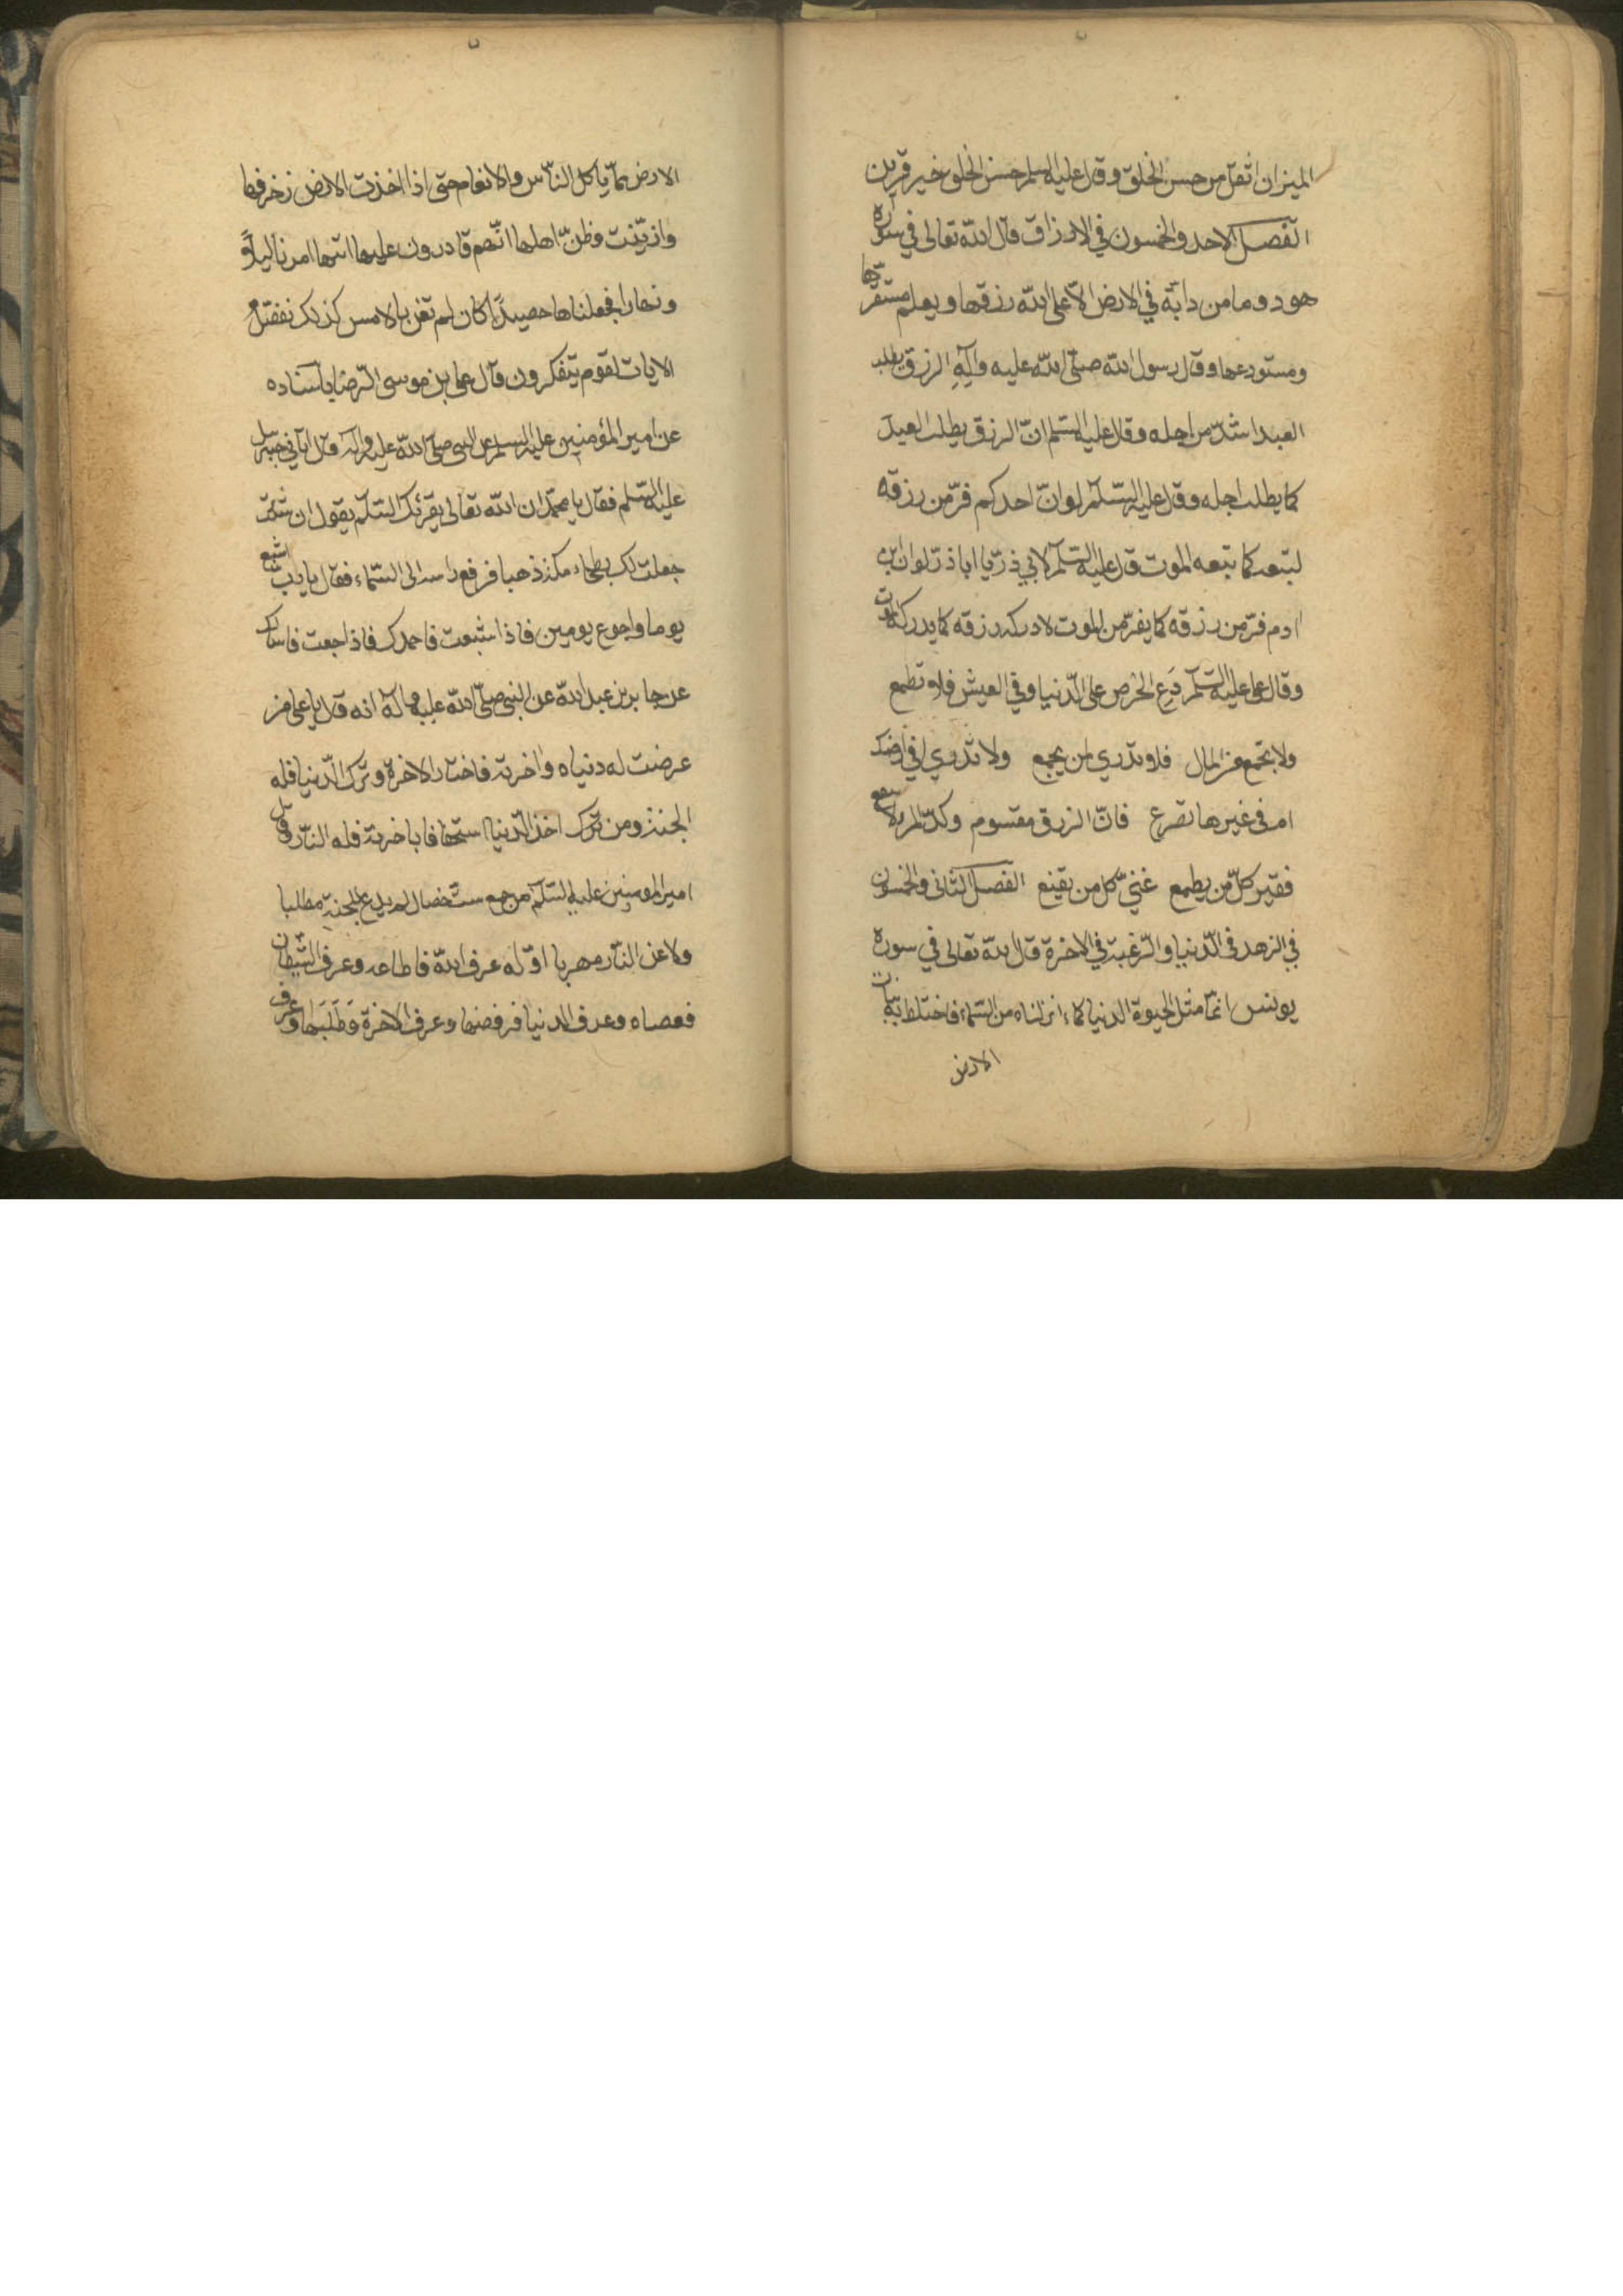 الميزان اثقل من حسن الخلق وقال عليه السلم حسن الخلق خير قرين
الفصل الاحد والخمسون في الارزاق قال الله تعالى في سورة
هود وما من دابة في الارض الا على الله رزقها ويعلم مستقرها
ومستودعها وقال رسول الله صلى الله عليه وآله الرزق يطلب
العبد اشد من اجله وقال عليه السلم ان الرزق يطلب العبد
كما يطلب اجله وقال عليه السلم لو ان احدكم فر من رزقه
لتبعه كما تبعه الموت قال عليه السلم لابي ذر يا ابا ذر لو ان ابن
ادم فر من رزقه كما يفر من الموت لادركه رزقه كما يدركه الموت
وقال على عليه السلم دع الحرص على الدنيا وفي العيش فلا تطمع
ولا تجمع من المال فلا تدري لمن يجمع ولا تدري افي ارضك
ام في غيرها تصرع فان الرزق مقسوم وكد المرء لا ينفع
فقير كل من يطمع غني كل من يقنع الفصل الثاني والخمسون
في الزهد في الدنيا والرغبة في الاخرة قال الله تعالى في سورة
يونس انما مثل الحيوة الدنيا كماء انزلناه من السماء فاختلط به نبات
الارض
الارض مما ياكل الناس والانعام حتى اذا اخذت الارض زخرفها
وازينت وظن اهلها انهم قادرون عليها اتيها امرنا ليلا و
ونهارا فجعلناها حصيدا كان لم تغن بالامس كذلك نفصل
الايات لقوم يتفكرون قال على بن موسى الرضا باسناده
عن امير المؤمنين عليه السلم عن النبي صلى الله عليه وآله قال اتاني جبرئيل
عليه السلم فقال يا محمد ان الله تعالى يقرئك السلم يقول ان شئت
جعلت لك بطحاء مكة ذهبا فرفع راسه الى السماء فقال يا رب اشبع
يوما واجوع يومين فاذا شبعت فاحمدك فاذا جعت فاسالك
عن جابر بن عبد الله عن النبي صلى الله عليه وآله انه قال يا على من
عرضت له دنياه واخرته فاختار الاخرة وترك الدنيا فله
الجنة ومن ترك اخذ الدنيا استخفافا باخرته فله النار وقال
امير المومنين عليه السلم من جمع ست خصال لم يدع للجنة مطلبا
ولا عن النار مهربا اوله عرف الله فاطاعه وعرف الشيطان
فعصاه وعرف الدنيا فرفضها وعرف الاخرة فطلبها وعرف